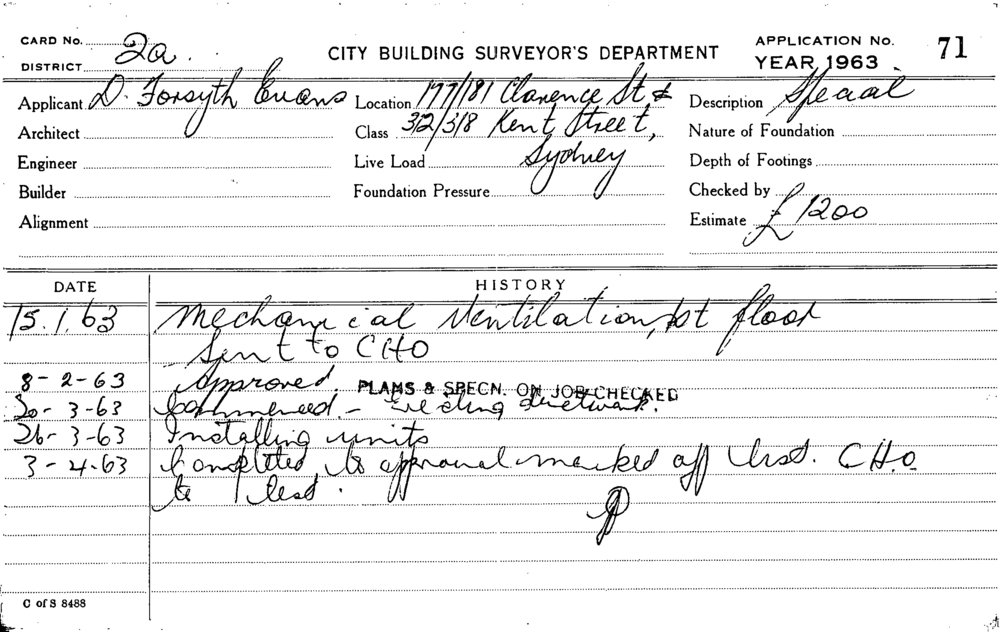 CARD No. CITY BUILDING SURVEYOR'S DEPARTMENT APPLICATION No. 71
DISTRICT 2a. YEAR 1963
Applicant D. Forsyth Evans Location 177/181 Clarence St. & Description Special
Architect Class 312/318 Kent Street, Nature of Foundation
Engineer Live Load Sydney Depth of Footings
Builder Foundation Pressure Checked by
Alignment Estimate £1200
DATE HISTORY
15.1.63 Mechanical Ventilation, 1st floor
Sent to CHO
8-2-63 Approved. PLAMS & SPECN. ON JOB CHECKED
20-3-63 Commenced - Erecting ductwork.
26-3-63 Installing units
3-4-63 Completed to approval marked off list. C.H.O.
to test.
C of S 8488